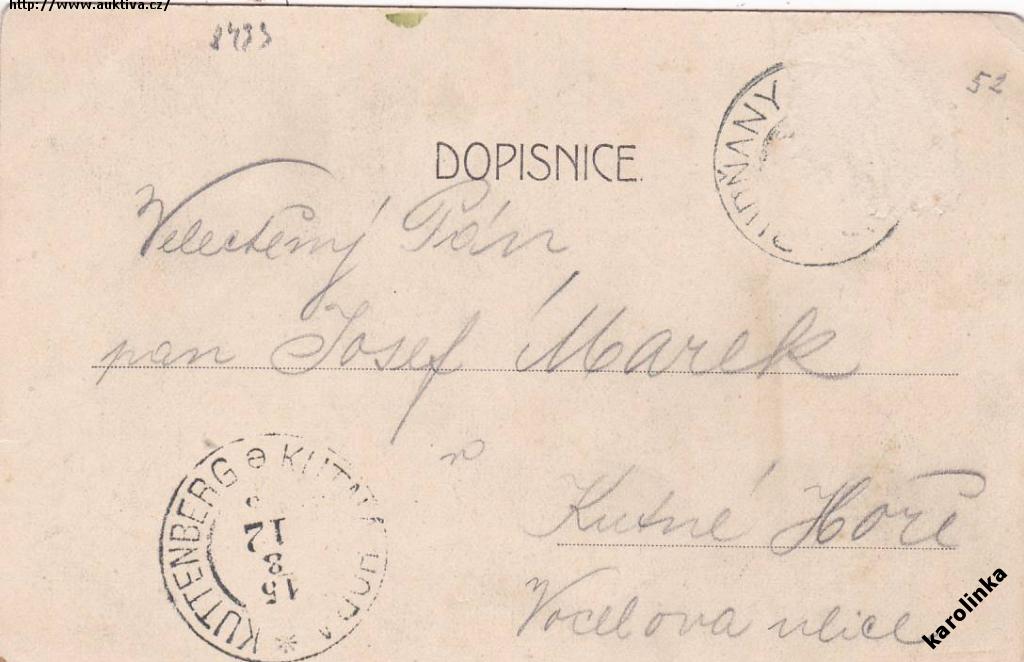 http://www.auktiva.cz/
8433
52
DOPISNICE.
Velectěný Pán
pan Josef Marek
v
Kutné Hoře
Vocelova ulice
KUTTENBERG KUTNÁ HORA
15
karolinka